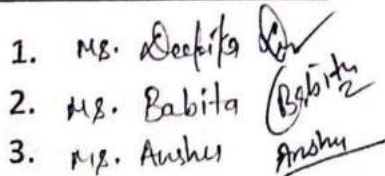 1. Ms. Deepika
2. Ms. Babita Babita
3. Ms. Anshu Anshu